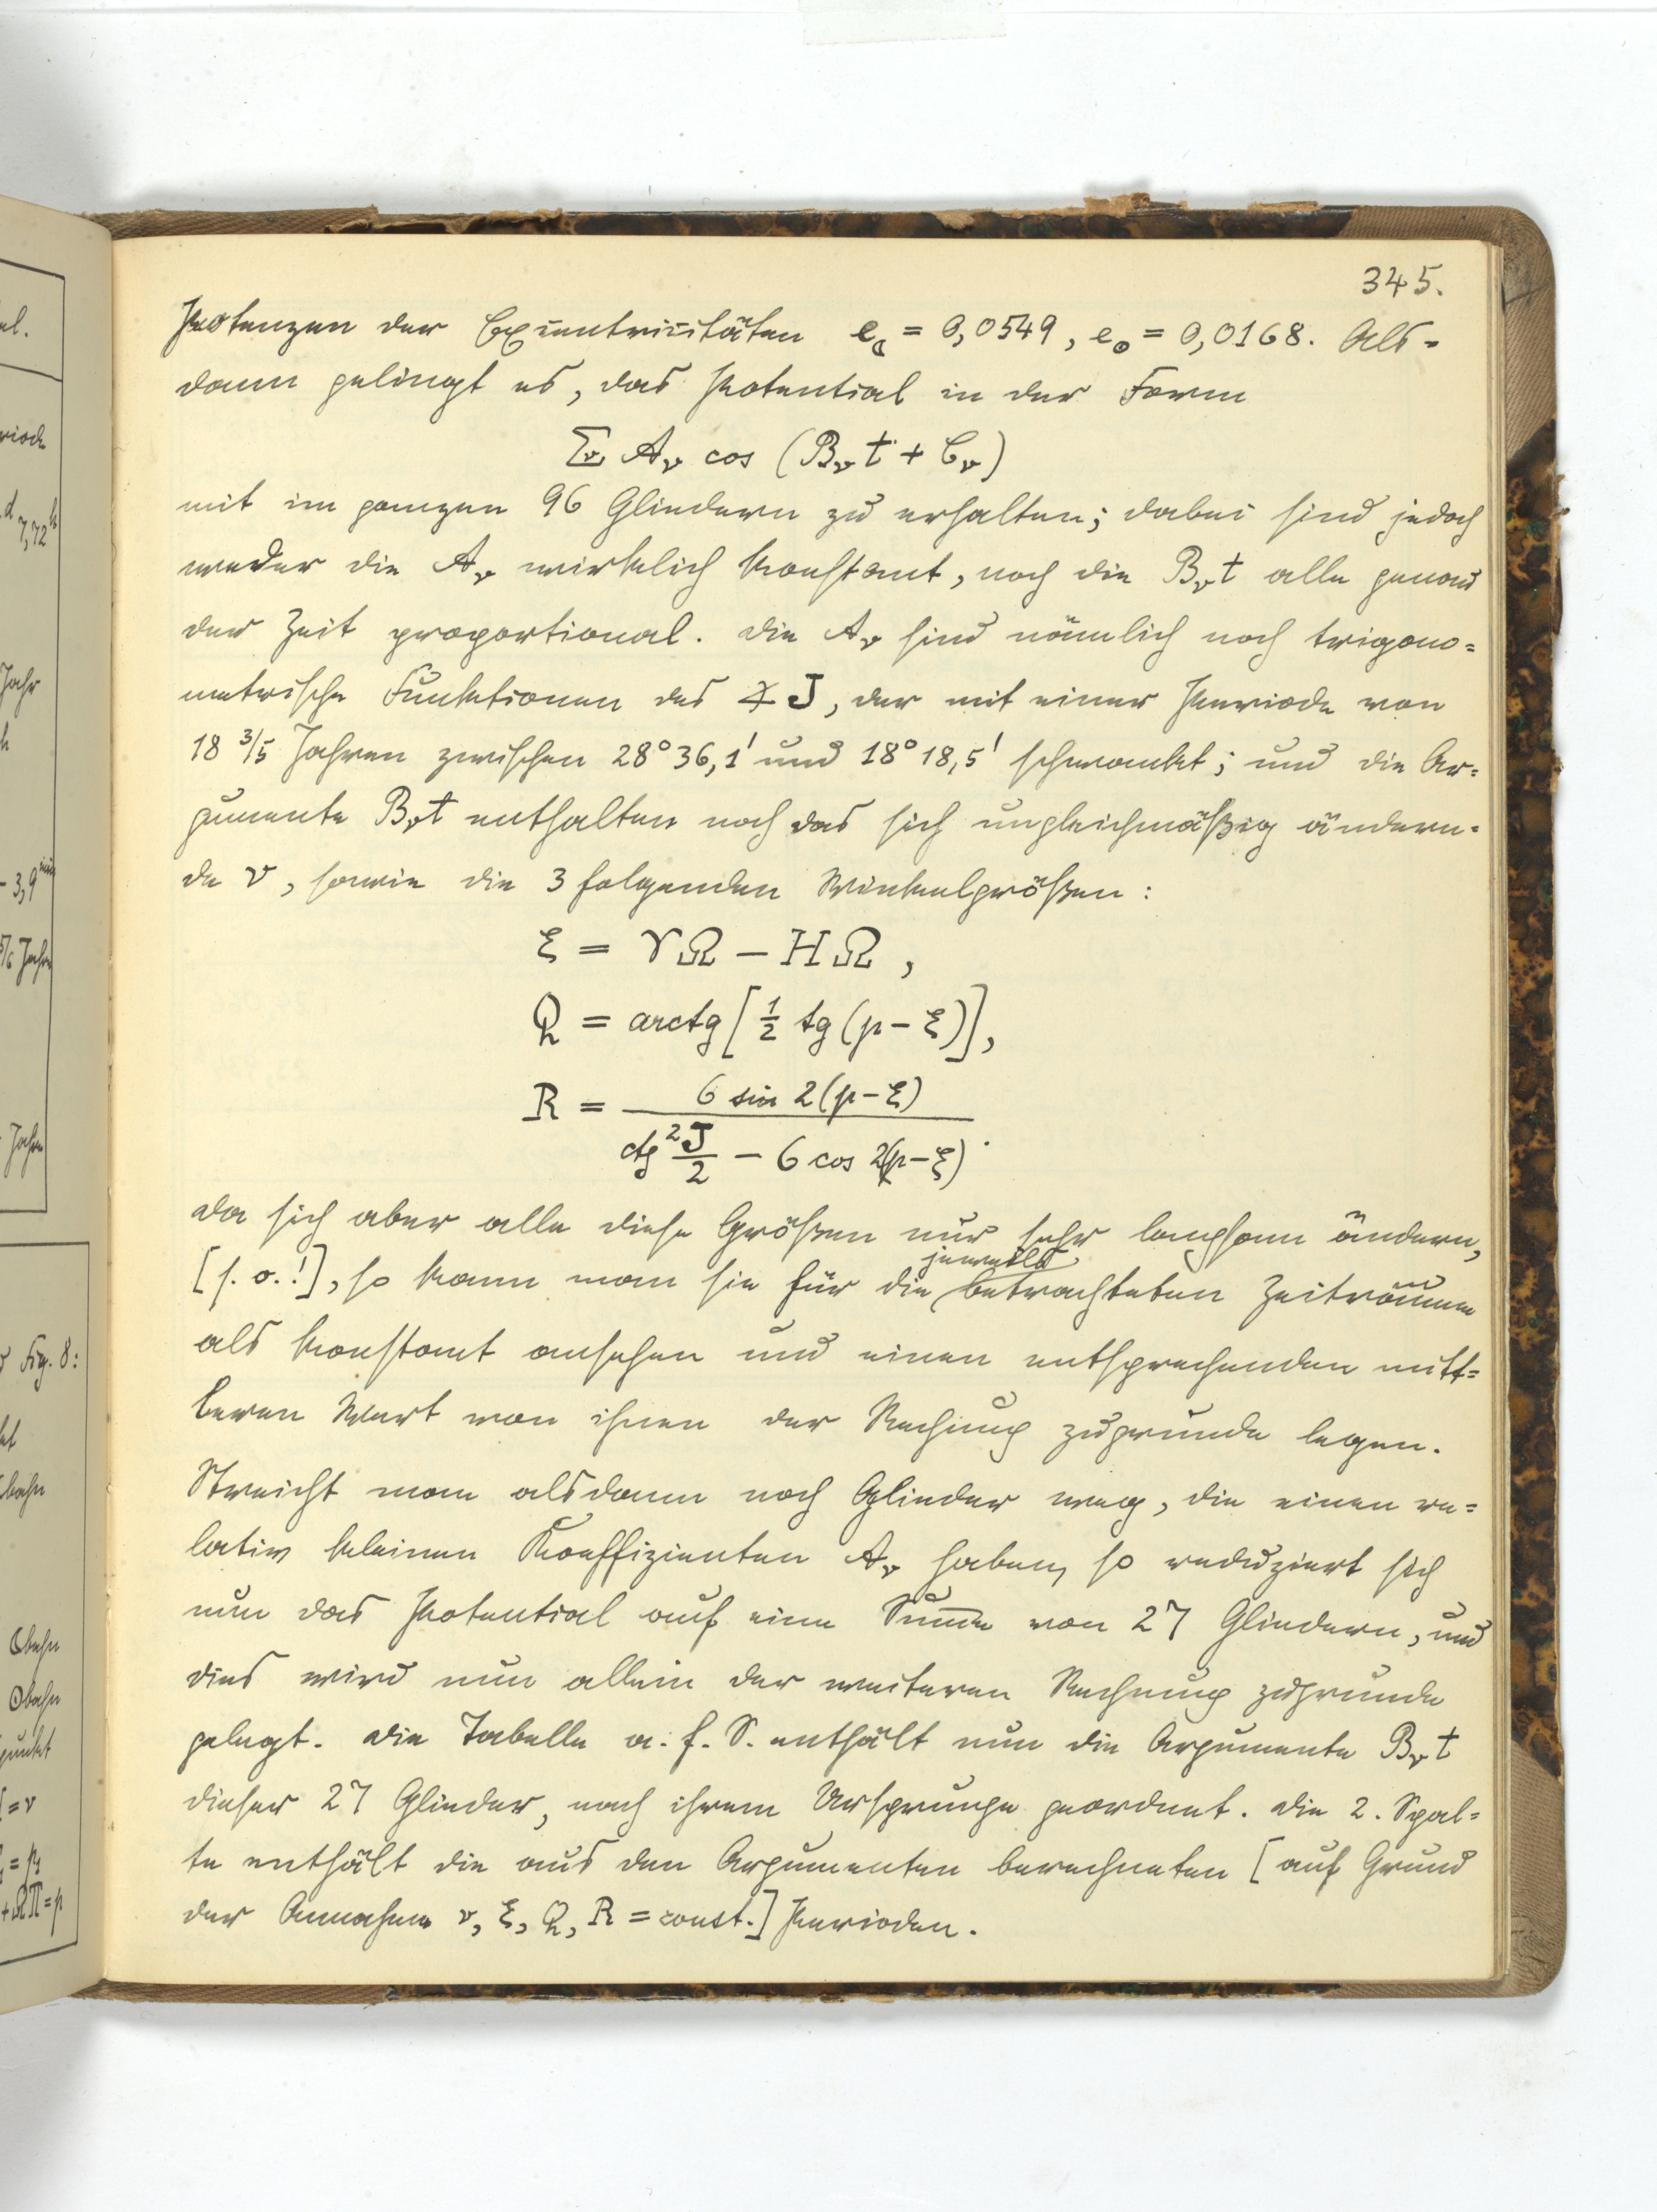 345.
Potenzen der Exzentrizitäten e☾ = 0,0549, e☉ = 0,0168. Als-
dann gelingt es, das Potential in der Form
Σ_ν A_ν cos (B_ν t + C_ν)
mit im ganzen 96 Gliedern zu erhalten; dabei sind jedoch
weder die A_ν wirklich konstant, noch die B_ν t alle genau
der Zeit proportional. Die A_ν sind nämlich noch trigono=
metrische Funktionen des ∢ J, der mit einer Periode von
18 3/5 Jahren zwischen 28° 36,1' und 18° 18,5' schwankt; und die Ar=
gumente B_ν t enthalten noch das sich ungleichmäßig ändern-
de ν, sowie die 3 folgenden Winkelgrößen:
ξ = ♈Ω − HΩ,
Q = arctg [½ tg (p − ξ)],
R = 6 sin 2(p − ξ)
ctg² J/2 − 6 cos 2(p − ξ).
Da sich aber alle diese Größen nur sehr langsam ändern,
jeweils
[s. o.!], so kann man sie für die betrachteten Zeiträume
als konstant ansehen und einen entsprechenden mitt=
leren Wert von ihnen der Rechnung zugrunde legen.
Streicht man alsdann noch Glieder weg, die einen re=
lativ kleinen Koeffizienten A_ν haben, so reduziert sich
nun das Potential auf eine Summe von 27 Gliedern, und
dies wird nun allein der weiteren Rechnung zugrunde
gelegt. Die Tabelle a. f. S. enthält nun die Argumente B_ν t
dieser 27 Glieder, nach ihrem Ursprunge geordnet. Die 2. Spal=
te enthält die aus den Argumenten berechneten [auf Grund
der Annahme ν, ξ, Q, R = const.] Perioden.
al.
riode
d 7,72 h
Jahr
h
- 3,9 min
5/6 Jahre
Jahre
Fig. 8:
bahn
☾bahn
☉bahn
punkt
= ν
+ ΩΠ = p